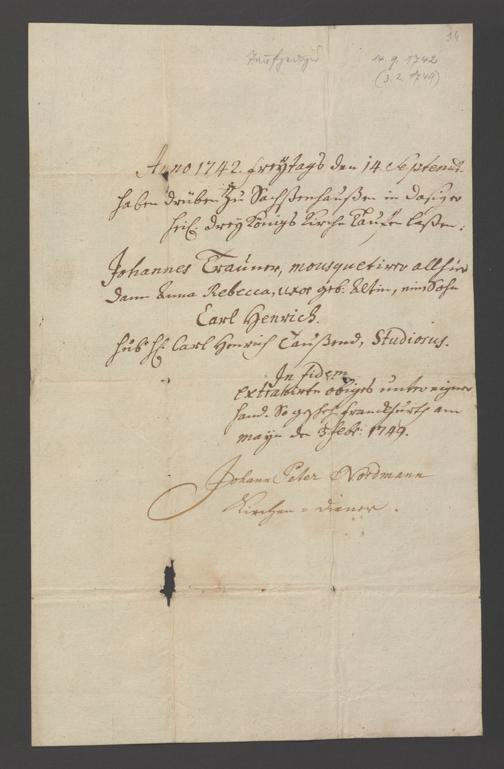 16
Taufzeugnis
14. 9. 1742
(3. 2. 1749)
Anno 1742. freytags den 14. Septemb.
haben drüben zu Sachßenhaußen in dasiger
heil. drey Königs Kirche Tauffen laßen:
Johannes Trauner, mousquetirer allhier
dann Anna Rebecca, uxor geb. Altin, ein Sohn
Carl Henrich.
hub H. Carl Henrich Taußend, Studiosus.
In fidem
extrahirte obiges unter eigner
hand. So gescheh. Franckfurth am
mayn de 3 febr. 1749.
Johann Peter Nordmann
Kirchen-diener.